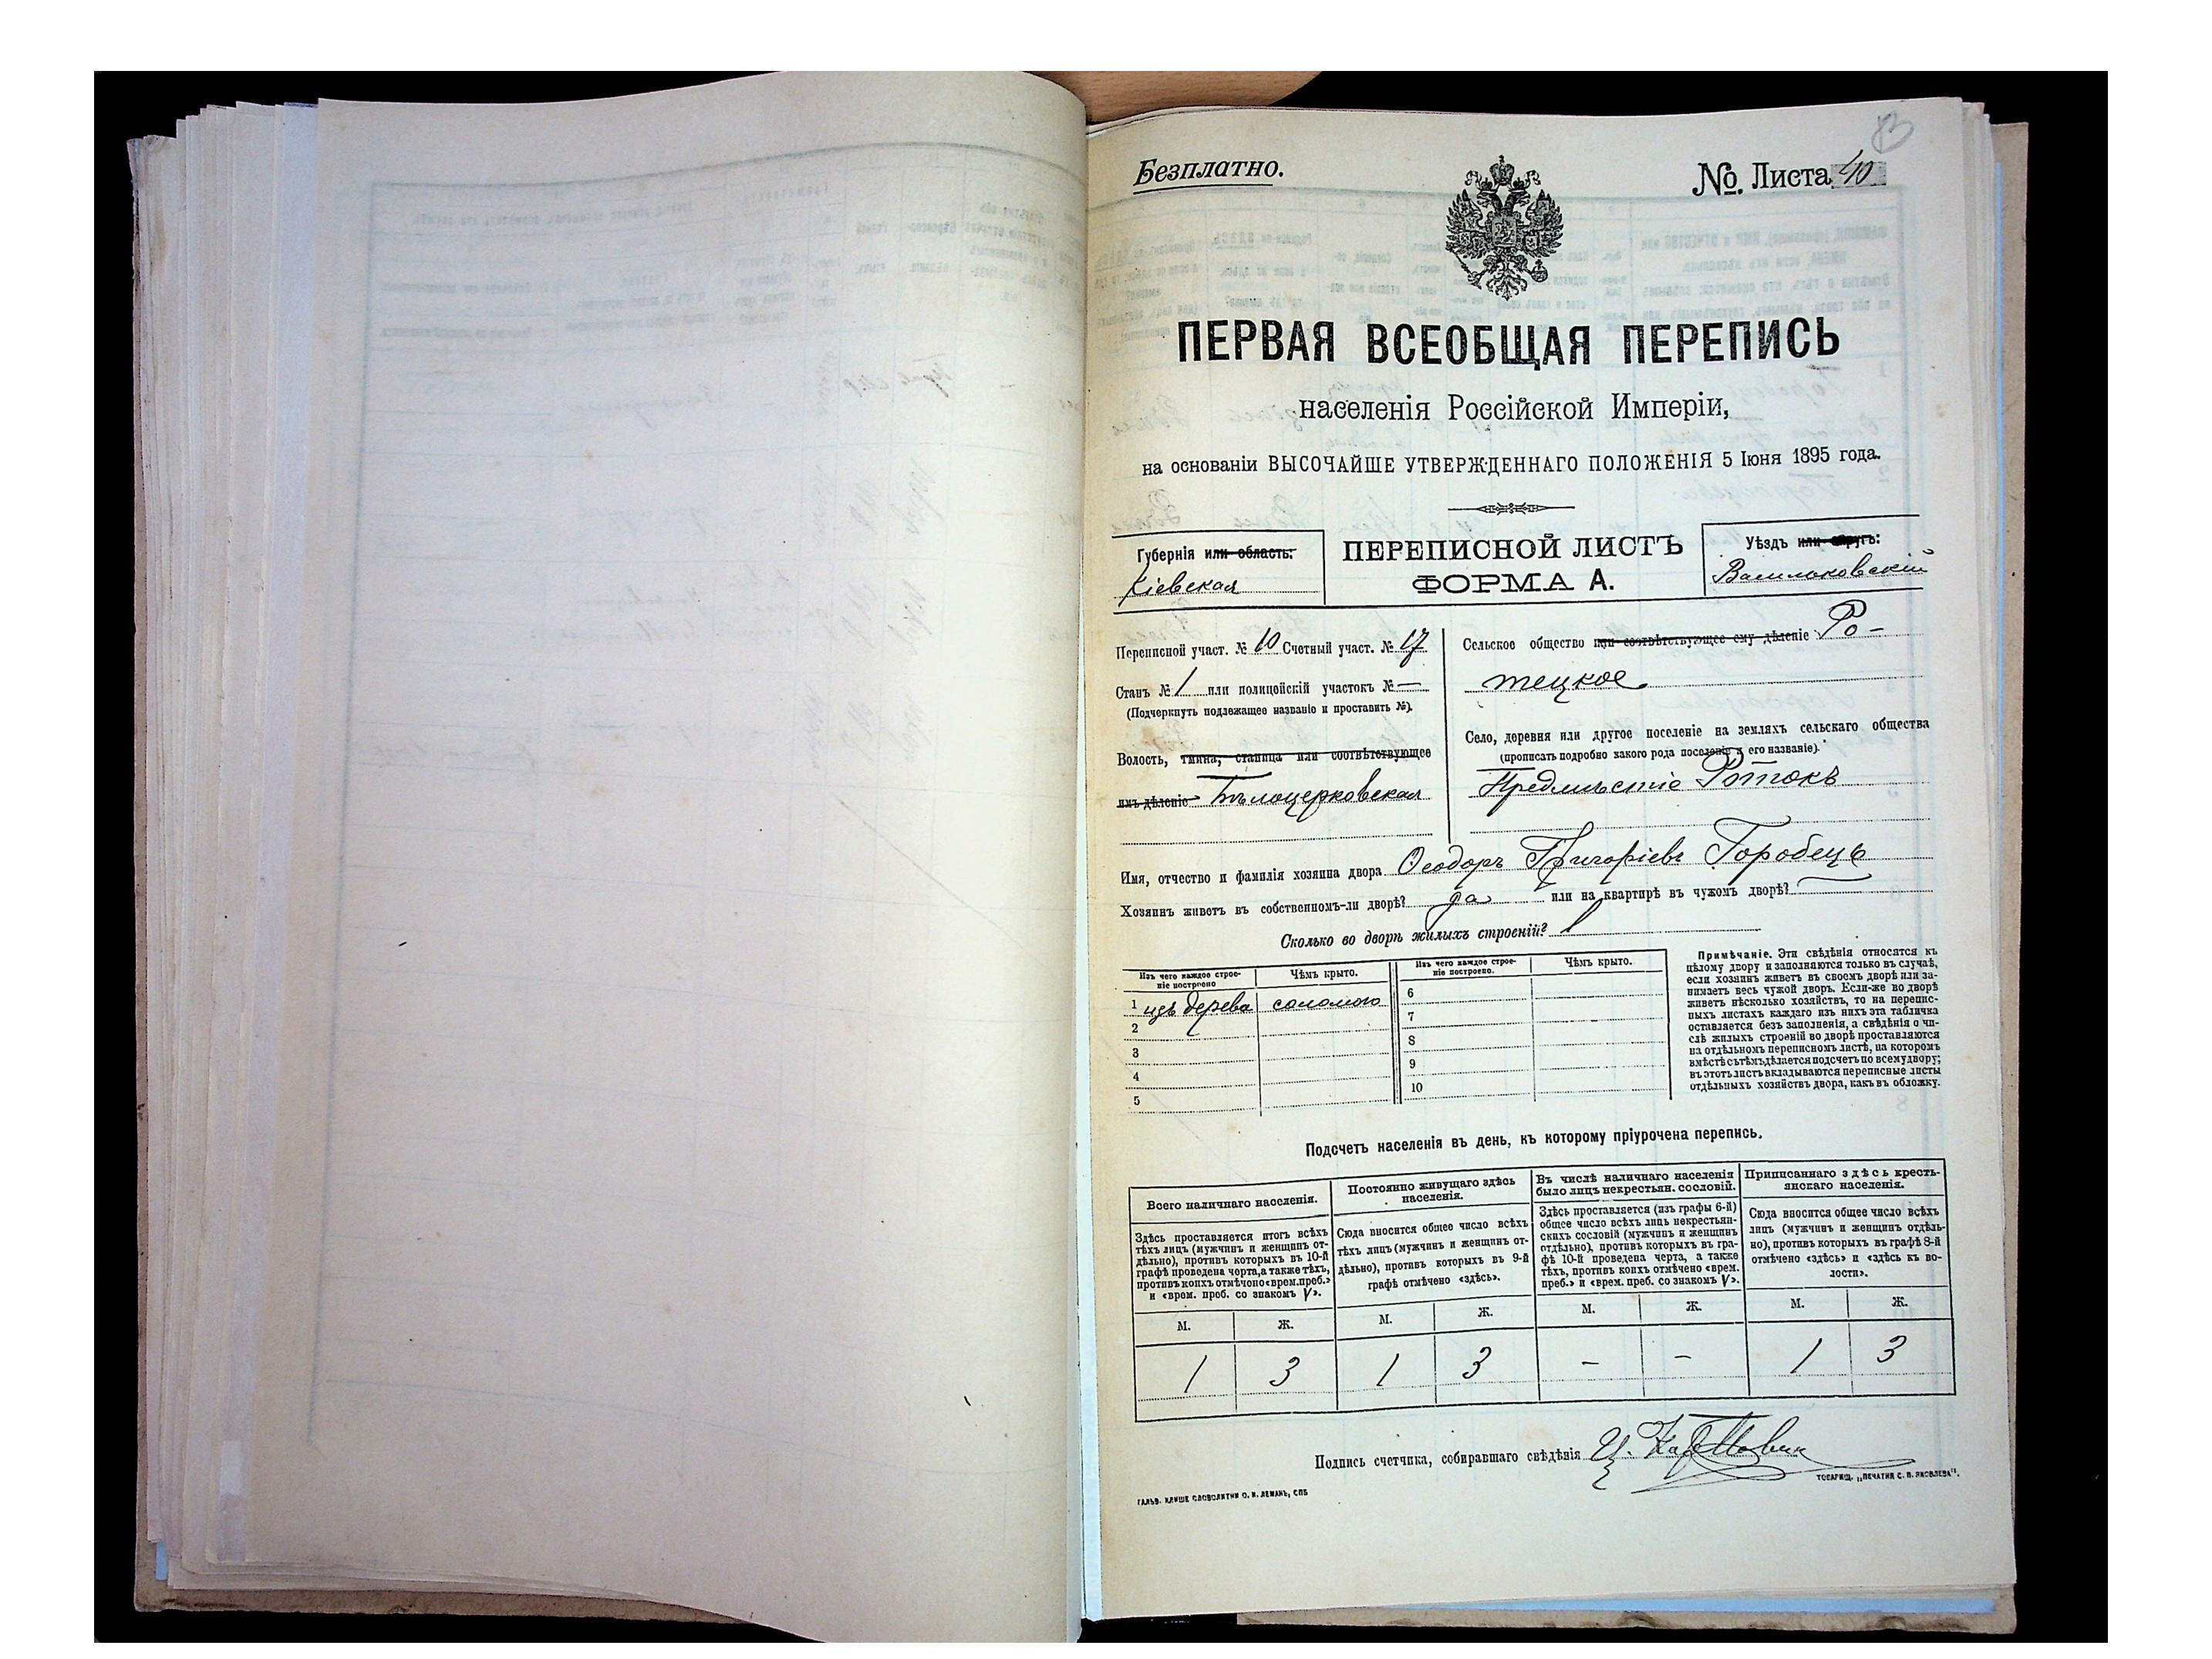 Безплатно.
№ Листа 40
ПЕРВАЯ ВСЕОБЩАЯ ПЕРЕПИСЬ
населенія Россійской Имперіи,
на основаніи ВЫСОЧАЙШЕ УТВЕРЖДЕННАГО ПОЛОЖЕНІЯ 5 Іюня 1895 года.
Губернія или область:
Кіевская
ПЕРЕПИСНОЙ ЛИСТЪ
ФОРМА А.
Уѣздъ или округъ:
Васильковскій
Переписной участ. № 10 Счетный участ. № 17
Станъ № 1 или полицейскій участокъ № —
(Подчеркнуть подлежащее названіе и проставить №).
Волость, гмина, станица или соотвѣтствующее
имъ дѣленіе Бѣлоцерковская
Сельское общество или соотвѣтствующее ему дѣленіе Ро-
тецкое
Село, деревня или другое поселеніе на земляхъ сельскаго общества
(прописать подробно какого рода поселеніе и его названіе).
Предмѣстіе Ротокъ
Имя, отчество и фамилія хозяина двора Ѳеодоръ Григоріевъ Горобець
Хозяинъ живетъ въ собственномъ-ли дворѣ? да или на квартирѣ въ чужомъ дворѣ? —
Сколько во дворѣ жилыхъ строеній? 1
Изъ чего каждое строе-
ніе построено
Чѣмъ крыто.
Изъ чего каждое строе-
ніе построено.
Чѣмъ крыто.
1 изъ дерева соломою
2
3
4
5
6
7
8
9
10
Примѣчаніе. Эти свѣдѣнія относятся къ
цѣлому двору и заполняются только въ случаѣ,
если хозяинъ живетъ въ своемъ дворѣ или за-
нимаетъ весь чужой дворъ. Если-же во дворѣ
живетъ нѣсколько хозяйствъ, то на перепис-
ныхъ листахъ каждаго изъ нихъ эта табличка
оставляется безъ заполненія, а свѣдѣнія о чи-
слѣ жилыхъ строеній во дворѣ проставляются
на отдѣльномъ переписномъ листѣ, на которомъ
вмѣстѣ съ тѣмъ дѣлается подсчетъ по всему двору;
въ этотъ листъ вкладываются переписные листы
отдѣльныхъ хозяйствъ двора, какъ въ обложку.
Подсчетъ населенія въ день, къ которому пріурочена перепись.
Всего наличнаго населенія.
Здѣсь проставляется итогъ всѣхъ
тѣхъ лицъ (мужчинъ и женщинъ от-
дѣльно), противъ которыхъ въ 10-й
графѣ проведена черта, а также тѣхъ,
противъ коихъ отмѣчено «врем. преб.»
и «врем. преб. со знакомъ V».
Постоянно живущаго здѣсь
населенія.
Сюда вносится общее число всѣхъ
тѣхъ лицъ (мужчинъ и женщинъ от-
дѣльно), противъ которыхъ въ 9-й
графѣ отмѣчено «здѣсь».
Въ числѣ наличнаго населенія
было лицъ некрестьян. сословій.
Здѣсь проставляется (изъ графы 6-й)
общее число всѣхъ лицъ некрестьян-
скихъ сословій (мужчинъ и женщинъ
отдѣльно), противъ которыхъ въ гра-
фѣ 10-й проведена черта, а также
тѣхъ, противъ коихъ отмѣчено «врем.
преб.» и «врем. преб. со знакомъ V».
Приписаннаго здѣсь кресть-
янскаго населенія.
Сюда вносится общее число всѣхъ
лицъ (мужчинъ и женщинъ отдѣль-
но), противъ которыхъ въ графѣ 8-й
отмѣчено «здѣсь» и «здѣсь къ во-
лости».
М. Ж. М. Ж. М. Ж. М. Ж.
1 3 1 3 – – 1 3
Подпись счетчика, собиравшаго свѣдѣнія
ГАЛЬВ. КЛИШЕ СЛОВОЛИТНИ О. И. ЛЕМАНЪ, СПБ
ТОВАРИЩ. „ПЕЧАТНЯ С. П. ЯКОВЛЕВА".